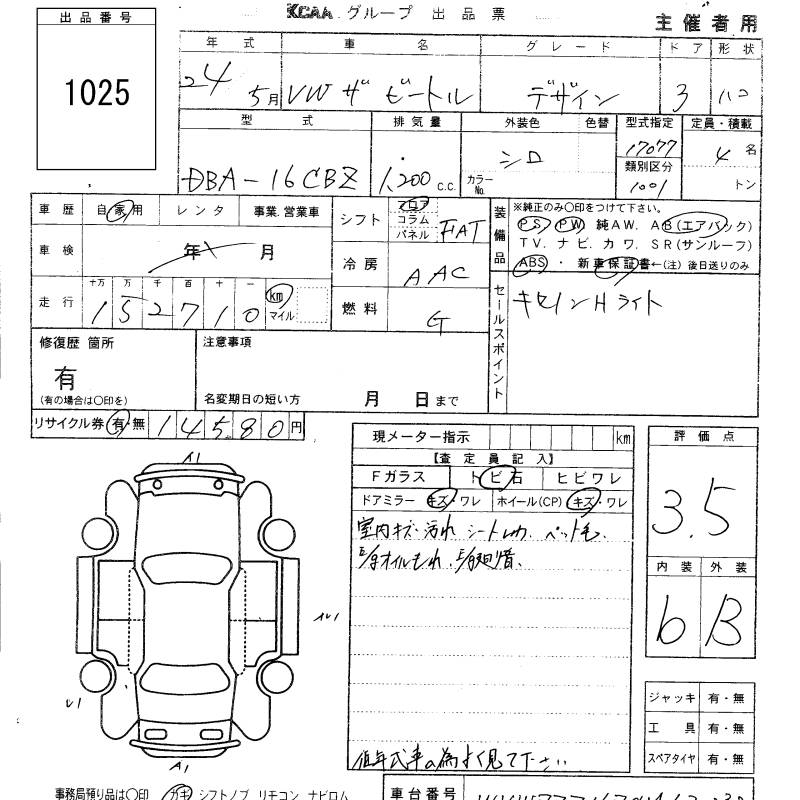 KCAA グループ 出品票
主催者用
出品番号
1025
年式 車名 グレード ドア 形状
24 5月 VW ザ ビートル デザイン 3 ハコ
型式 排気量 外装色 色替 型式指定 定員・積載
DBA-16CBZ 1,200 c.c. シロ カラーNo. 17077 4名
類別区分 1001 トン
車歴 自家用 レンタ 事業.営業車
シフト フロア コラム パネル FAT
車検 年 月
冷房 AAC
走行 十万 万 千 百 十 一 km マイル
152710
燃料 G
装備品
※純正のみ〇印をつけて下さい。
PS PW 純AW. AB(エアバック)
TV. ナビ. カワ. SR(サンルーフ)
ABS ・ 新車保証書←(注)後日送りのみ
セールスポイント
キセノンHライト
修復歴 箇所
有
(有の場合は〇印を)
注意事項
名変期日の短い方 月 日まで
リサイクル券 有・無 14580円
現メーター指示 km
【査定員記入】
Fガラス トビ石 ヒビワレ
ドアミラー キズ・ワレ ホイール(CP) キズ・ワレ
室内キズ・汚れ シート ペット毛.
E/gオイルもれ.
低年式車の為よく見て下さい
評価点
3.5
内装 外装
b B
ジャッキ 有・無
工具 有・無
スペアタイヤ 有・無
A1
A1
事務局預り品は〇印 カギ シフトノブ リモコン ナビロム
車台番号